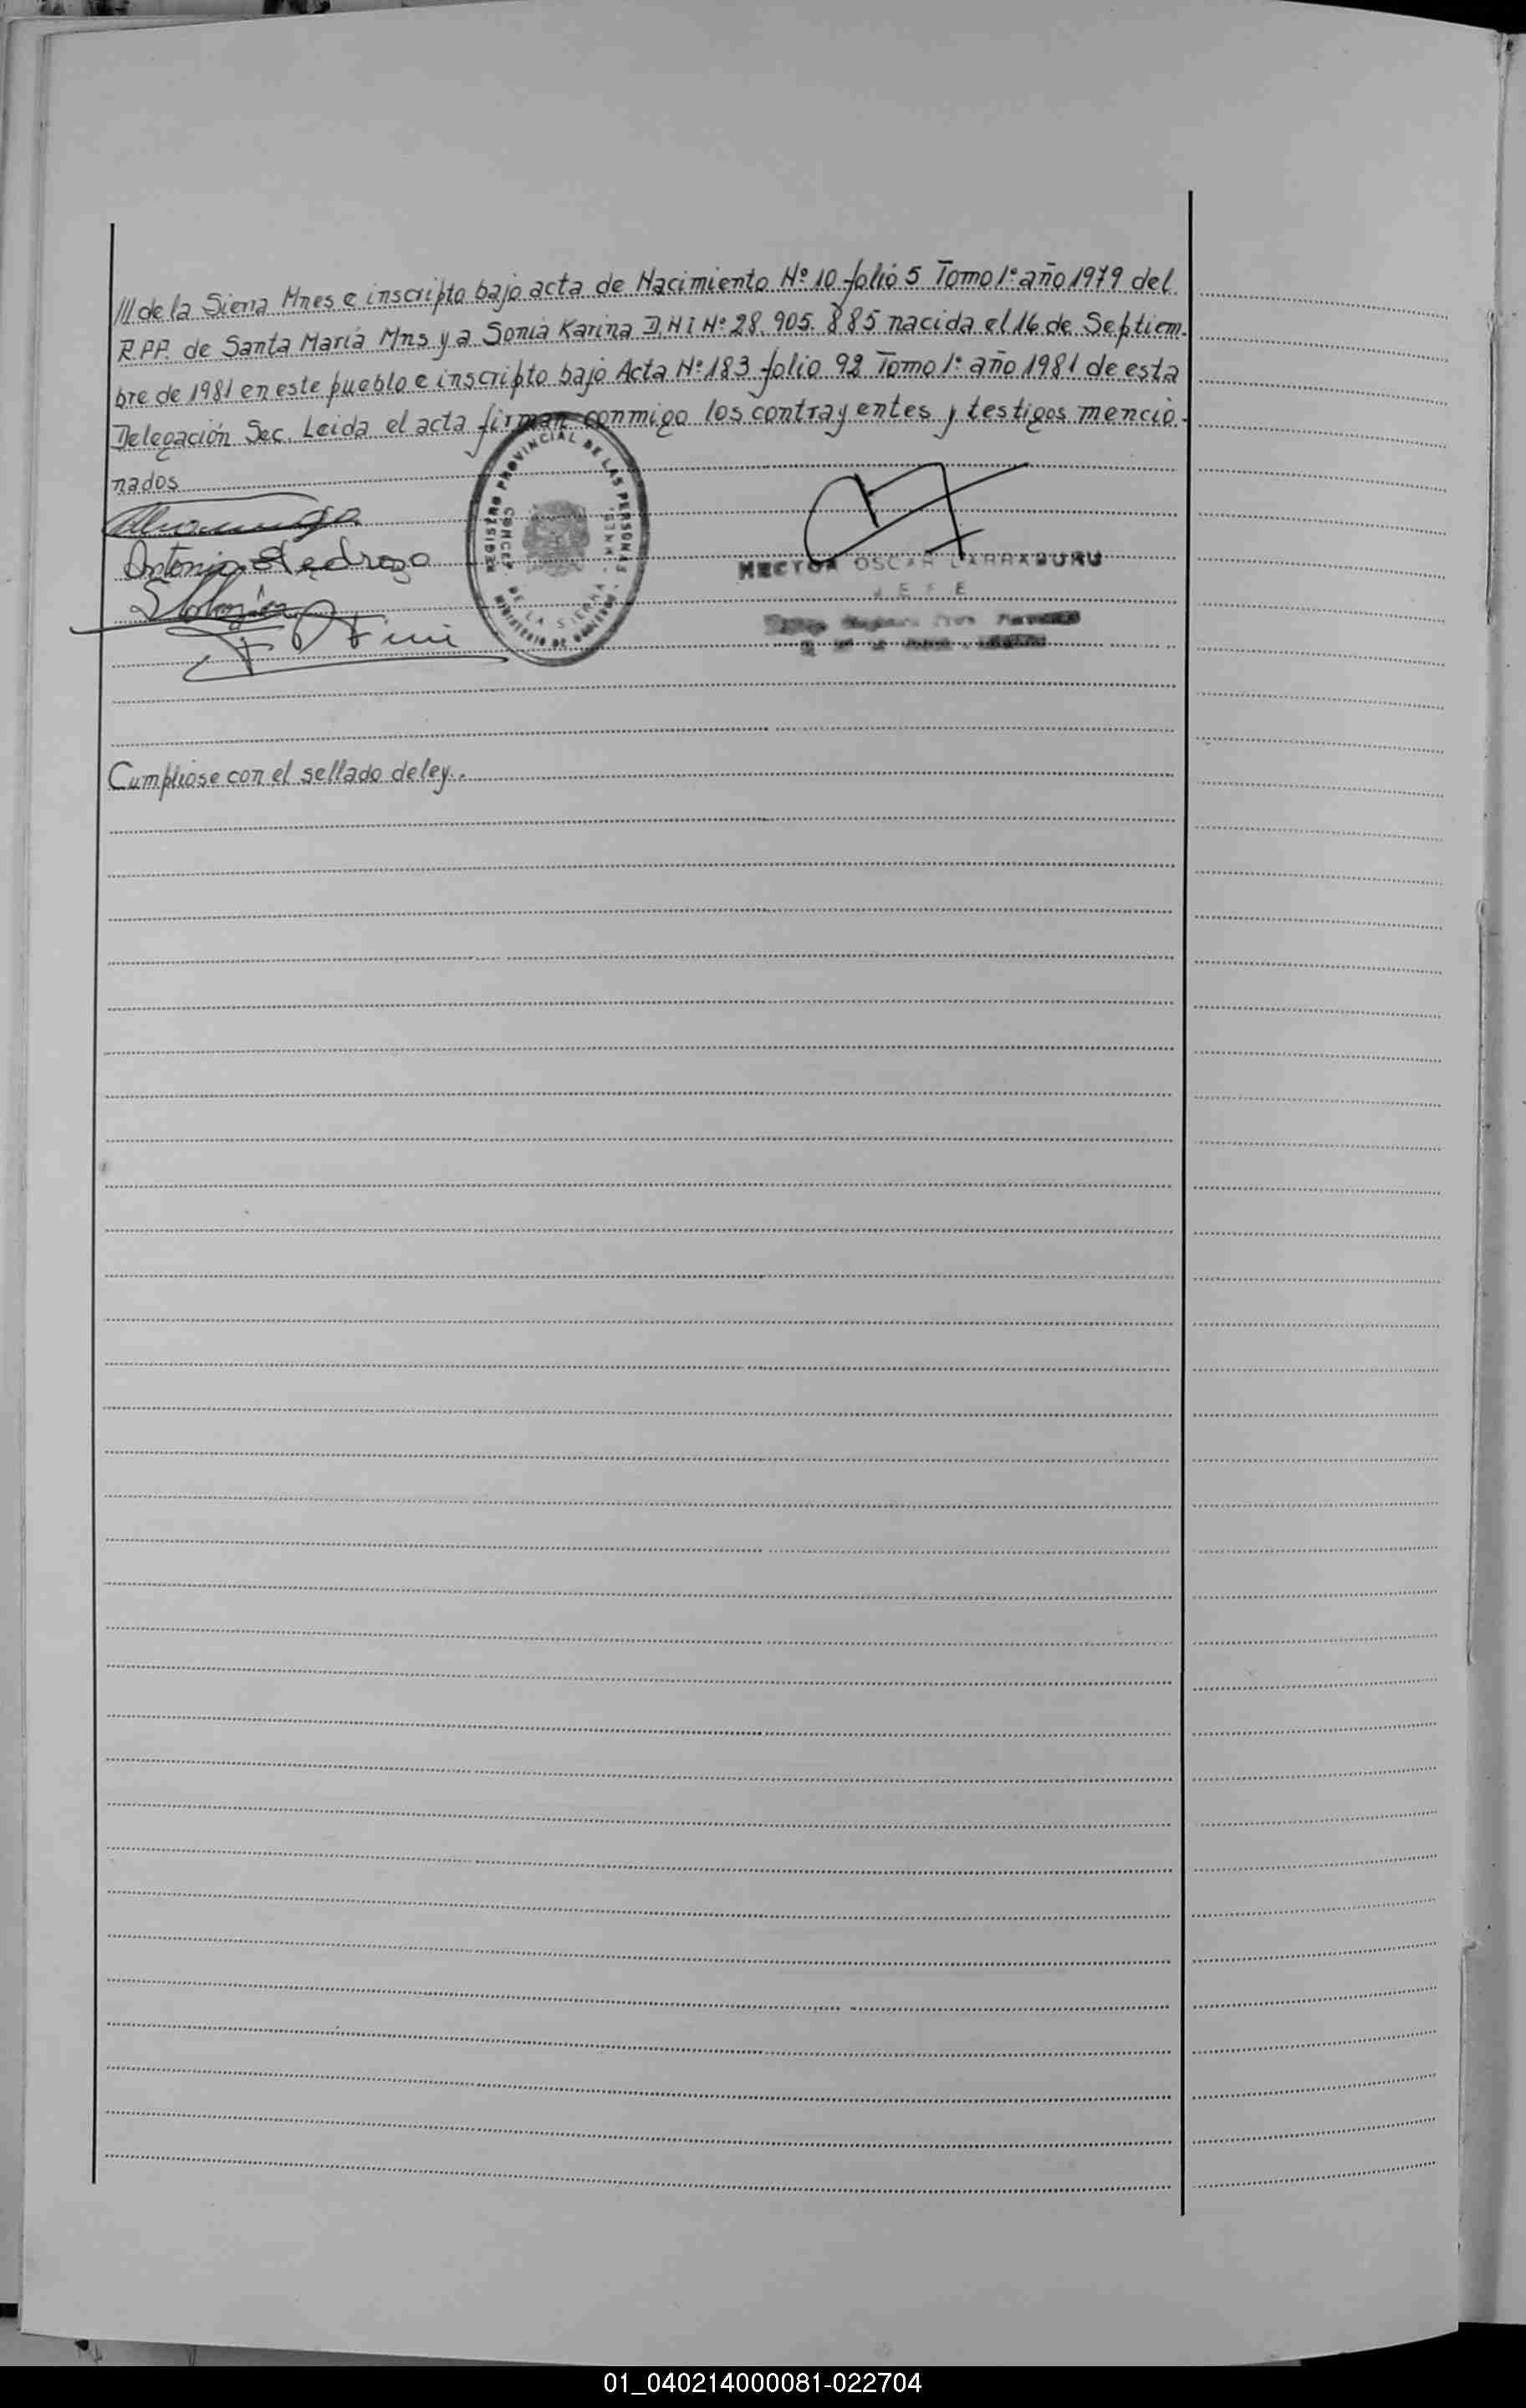 /// de la Sierra Mnes e inscripto bajo acta de Nacimiento Nº 10 folio 5 Tomo 1º año 1979 del
R.P.P. de Santa María Mns y a Sonia Karina D.N.I Nº 28.905.885 nacida el 16 de Septiem-
bre de 1981 en este pueblo e inscripto bajo Acta Nº 183 folio 92 Tomo 1º año 1981 de esta
Delegación Sec. Leida el acta firman conmigo los contrayentes y testigos mencio-
nados
REGISTRO PROVINCIAL DE LAS PERSONAS
CONCEP. DE LA SIERRA - MNES.
MINISTERIO DE GOBIERNO
Antonio Pedrozo
HECTOR OSCAR LARRABURU
JEFE
Cumpliose con el sellado de ley..
01_040214000081-022704